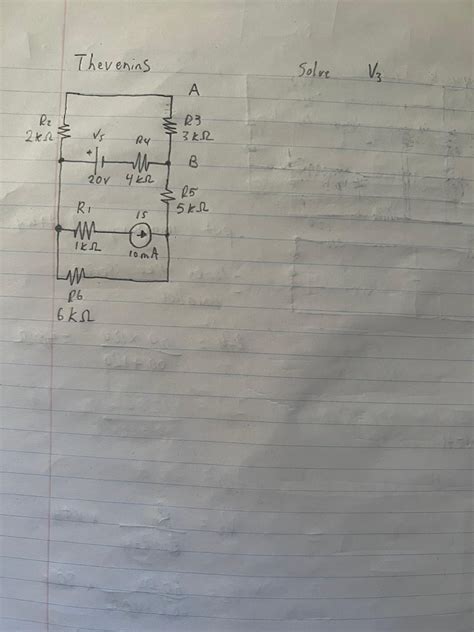 Thevenins
Solve V3
A
R2
2kΩ
R3
3kΩ
+
Vs
R4
B
20v
4kΩ
R5
5kΩ
R1
IS
1kΩ
10mA
R6
6kΩ